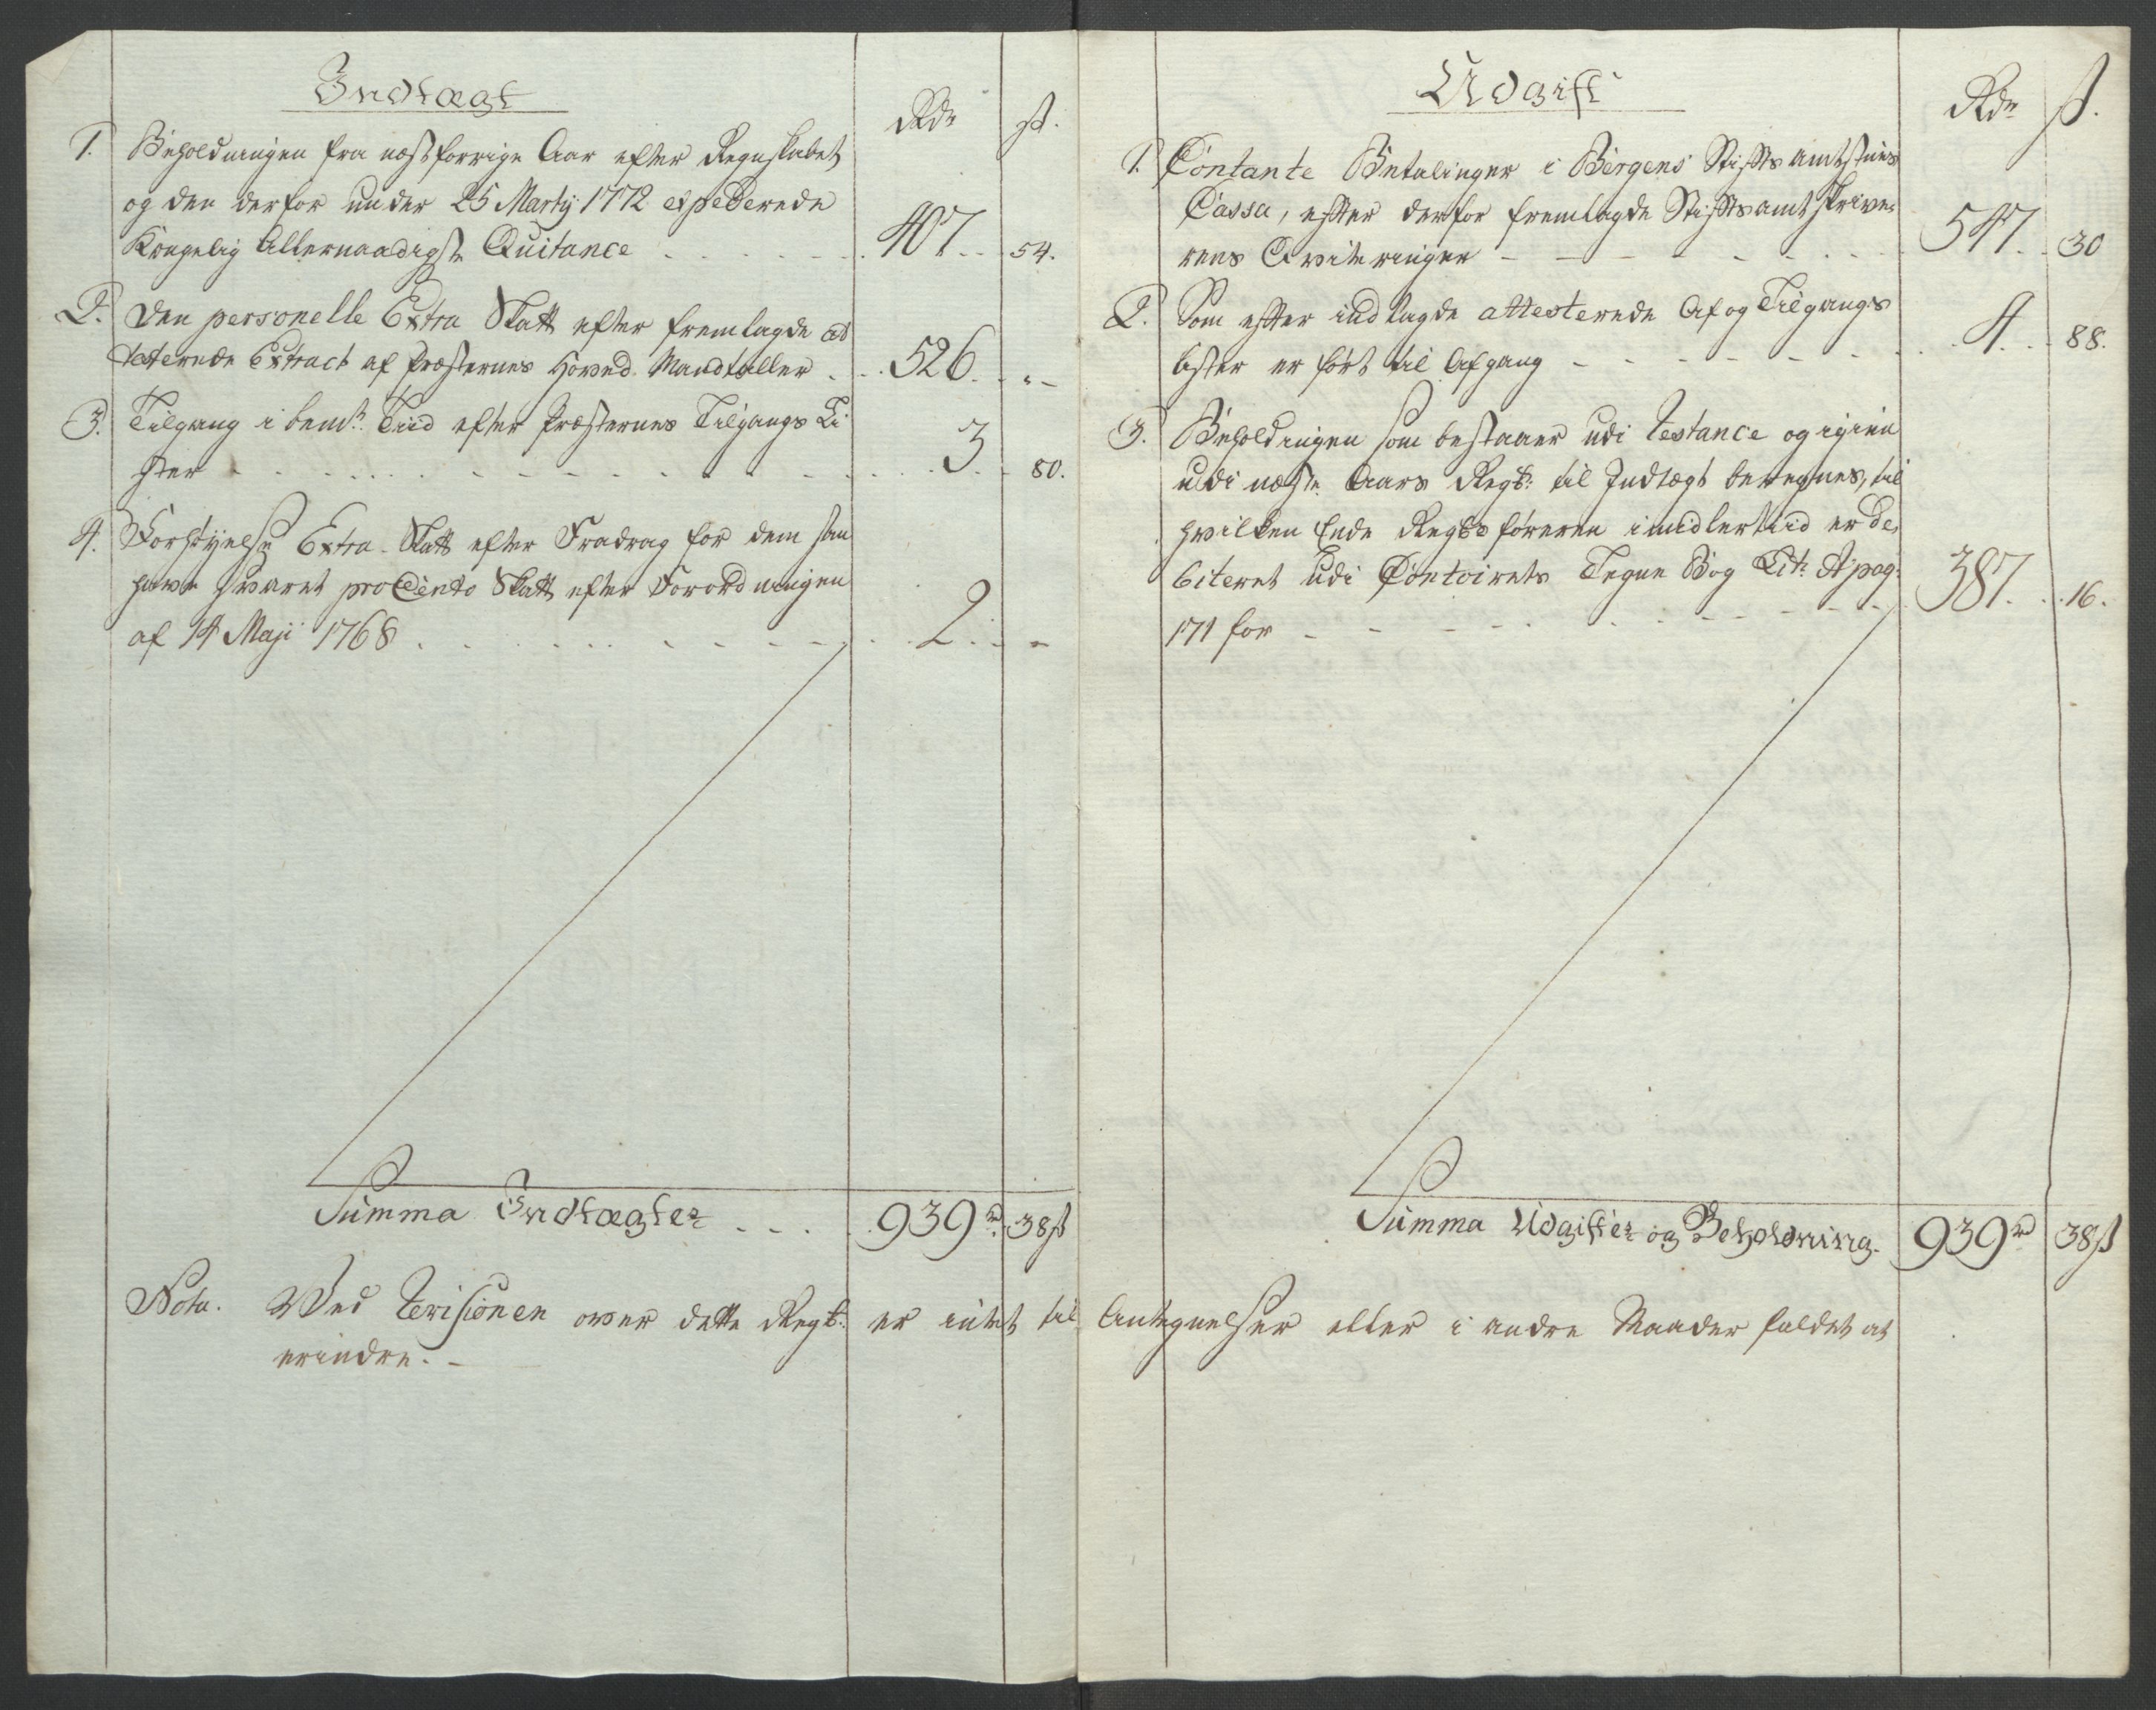 Indtægt
Rdr ß.
1. Beholdningen fra næstforrige Aar efter Regnskabet
og den derfor under 25 Martij 1772 expederede
Kongelig Allernaadigste Quitance . . . . . . 407. 54.
2. Den personelle Extra Skatt efter fremlagde at
testerede Extract af Præsternes Hoved Mandtaller . . 526. „ -
3. Tilgang i bemte Tiid efter Præsternes Tilgangs Li
ster - . . . . . . - - - - - - - . . 3. 80.
4. Extra Skatt efter Fradrag for dem som
have svaret pro Cento Skatt efter Forordningen
af 14 Maji 1768 . . . . . . - - - - . . 2. -
Summa Indtægter . . . . 939 rd 38 ß
Udgift
Rdr ß.
1. Contante Betalinger i Bergens Stiftsamtstues
Cassa, efter derfor fremlagde Stiftsamtskrive,
rens Qviteringer - - - - - - . . . 547. 30
2. Som efter indlagde attesterede Af og Tilgangs
lister er ført til Afgang - - - - - - - . . 4. 88.
3. Beholdningen som bestaaer udi Restance og igien
udi næste Aars Regsk: til Indtægt beregnes, til
hvilken Ende Regnsk føreren imidlertiid er de,
biteret udi Contoirets Tegne Bog Litr A pag:
171 for - - - - . . . - - - - - 387. 16.
Summa Udgifter og Beholdning. 939 rd 38 ß
Nota. Ved Revisionen over dette Regsk: er intet til Antegnelser eller i andre Maader faldet at
erindre. -